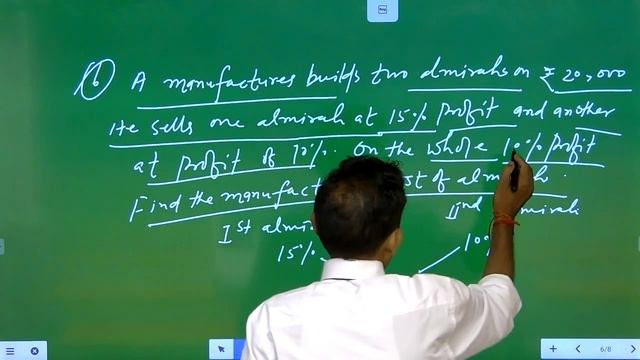 6 A manufactures builds two almirahs on ₹ 20,000
He sells one almirah at 15% profit and another
at profit of 10%. On the whole 10% profit
Find the of almirah.
Ist IInd almirah
15% 10
6/8